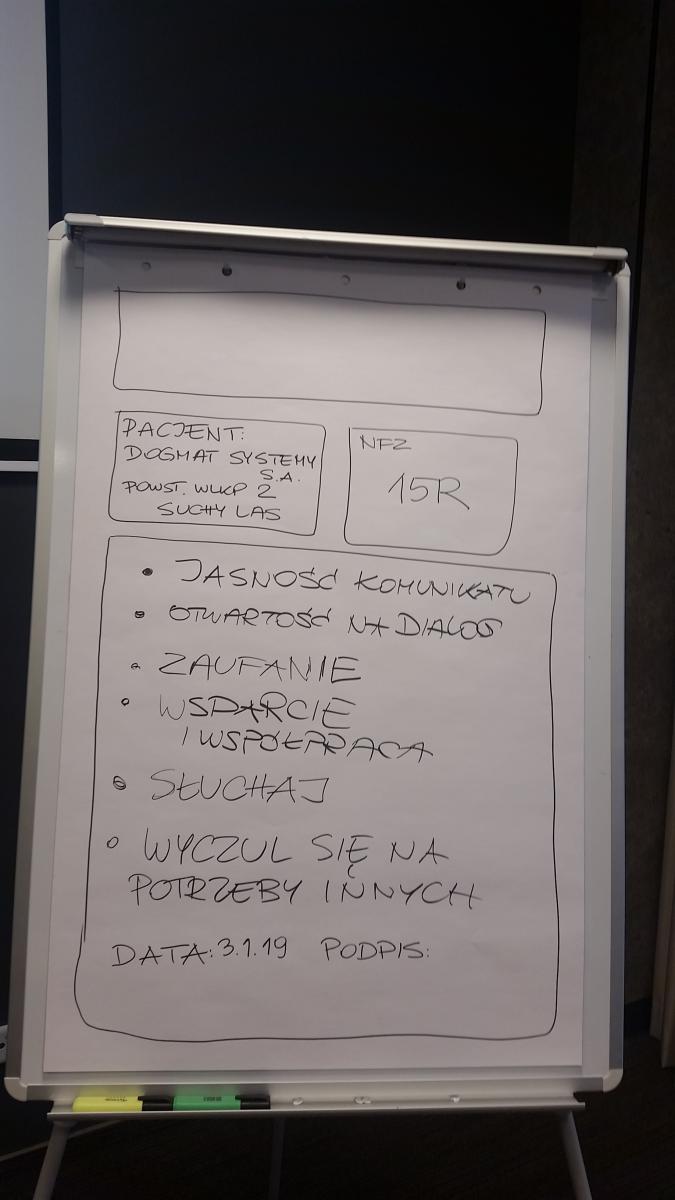 PACJENT:
DOGMAT SYSTEMY
S.A.
POWST. WLKP 2
SUCHY LAS
NFZ
15R
• JASNOŚĆ KOMUNIKATU
• OTWARTOŚĆ NA DIALOG
• ZAUFANIE
• WSPARCIE
I WSPÓŁPRACA
• SŁUCHAJ
• WYCZUL SIĘ NA
POTRZEBY INNYCH
DATA: 3.1.19 PODPIS: